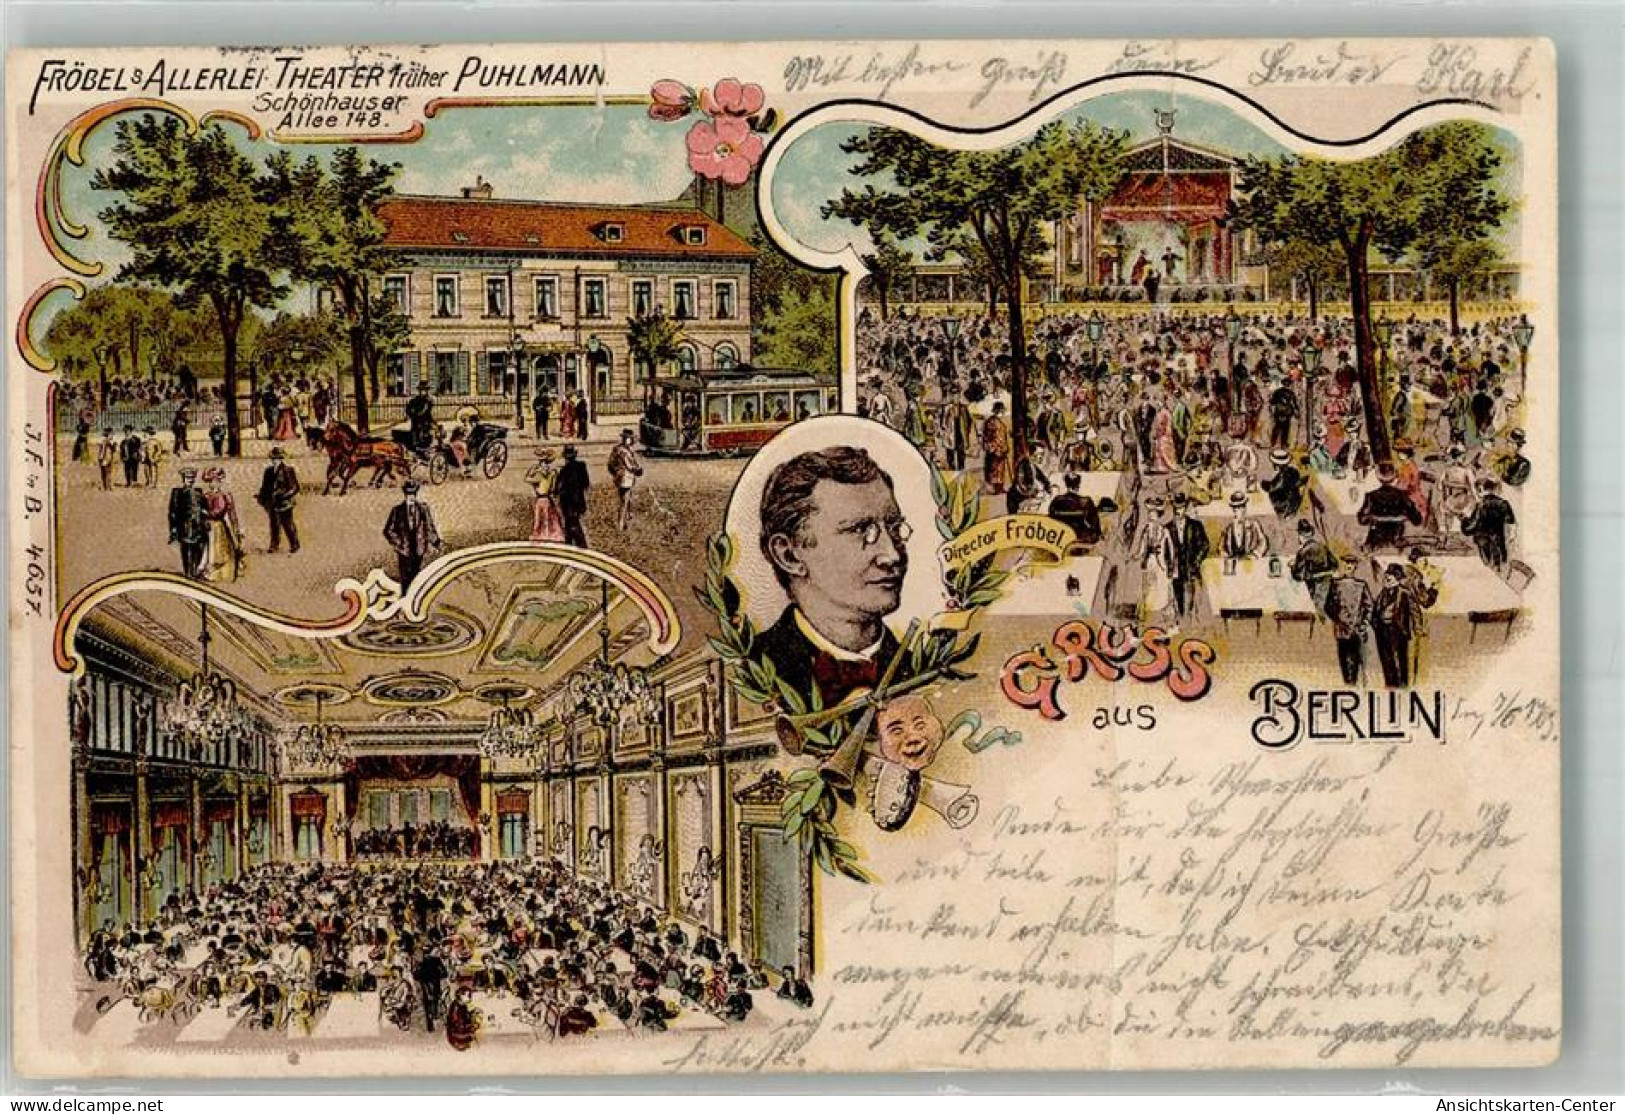 FRÖBEL's ALLERLEI-THEATER früher PUHLMANN.
Schönhauser
Allee 148.
Mit besten Gruß dein Bruder Karl.
Director Fröbel.
GRUSS
aus BERLIN
J. F. in B. 4657.
Liebe Schwester!
Sende dir die herzlichsten Grüße
und teile mit, daß ich deine Karte
dankend erhalten habe. Entschuldige
wegen meines nicht schreibens, da
ich nicht wußte, ob du die Stellung
hattest.
Ansichtskarten-Center